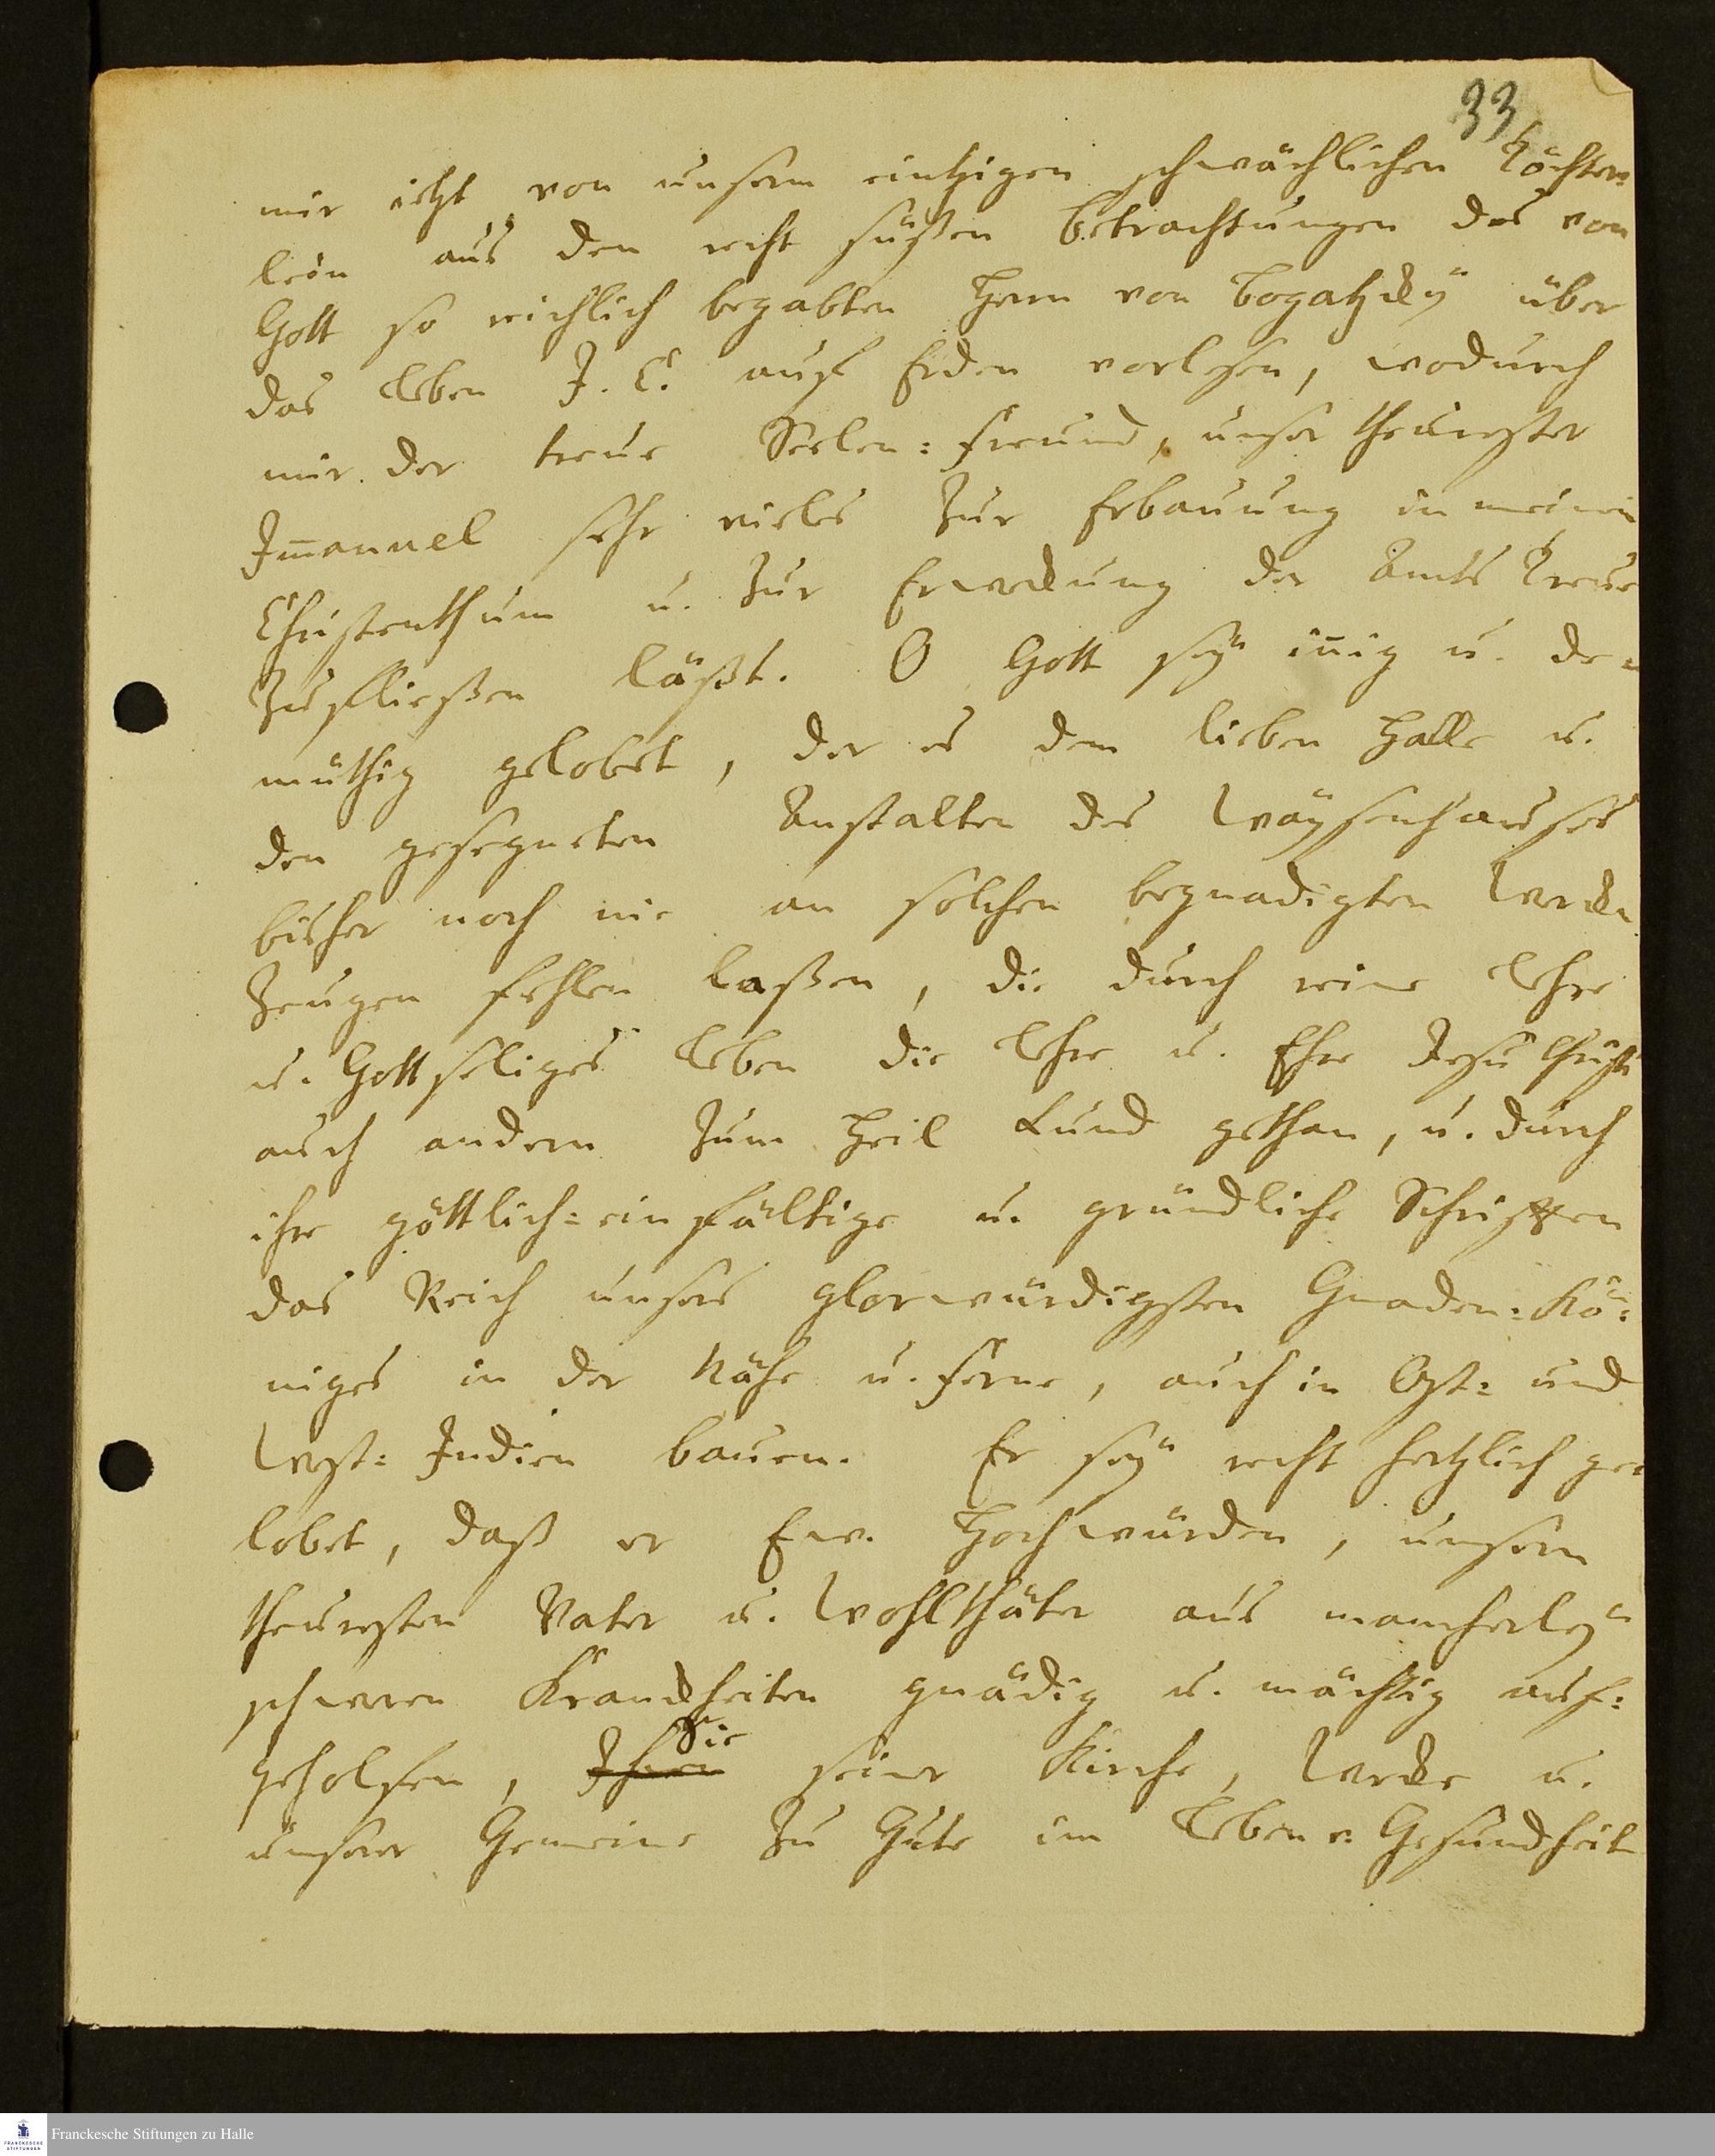 33
mir ietzt von unserm eintzigen schwächlichen Töchter=
lein aus den recht süßen Betrachtungen des von
Gott so reichlich begabten Herrn von Bogatzky über
das Leben J. C. auf Erden vorlesen, wodurch
mir der treue Seelen=Freund, unser theurester
Im̄anuel sehr vieles zur Erbauung in meinem
Christenthum u. zur Erweckung der Amts Treue
zufließen läßt. O Gott seÿ in̄ig u. de=
müthig gelobet, der es dem lieben Halle u.
den gesegneten Anstalten des Waÿsenhauses
bisher noch nie an solchen begnadigten Werck
zeugen fehlen laßen, die durch reine Lehre
u. Gottseliges Leben die Lehre u. Ehre Jesu Christi
auch andern zum Heil kund gethan, u. durch
ihre göttlich=einfältige u. gründliche Schriften
das Reich unsers glorwürdigsten Gnaden=Kö=
niges in der Nähe u. Ferne, auch in Ost= und
West=Indien bauen. Er seÿ recht hertzlich ge=
lobet, daß er Ew. Hochwürden, unserm
theuresten Vater u. Wohlthäter aus mancherleÿ
schweren Kranckheiten gnädig u. mächtig auf=
geholfen, Ihnen Sie seiner Kirche, Wercke u.
unserer Gemeine zu Gute im Leben u. Gesundheit
Franckesche Stiftungen zu Halle
FRANCKESCHE
STIFTUNGEN